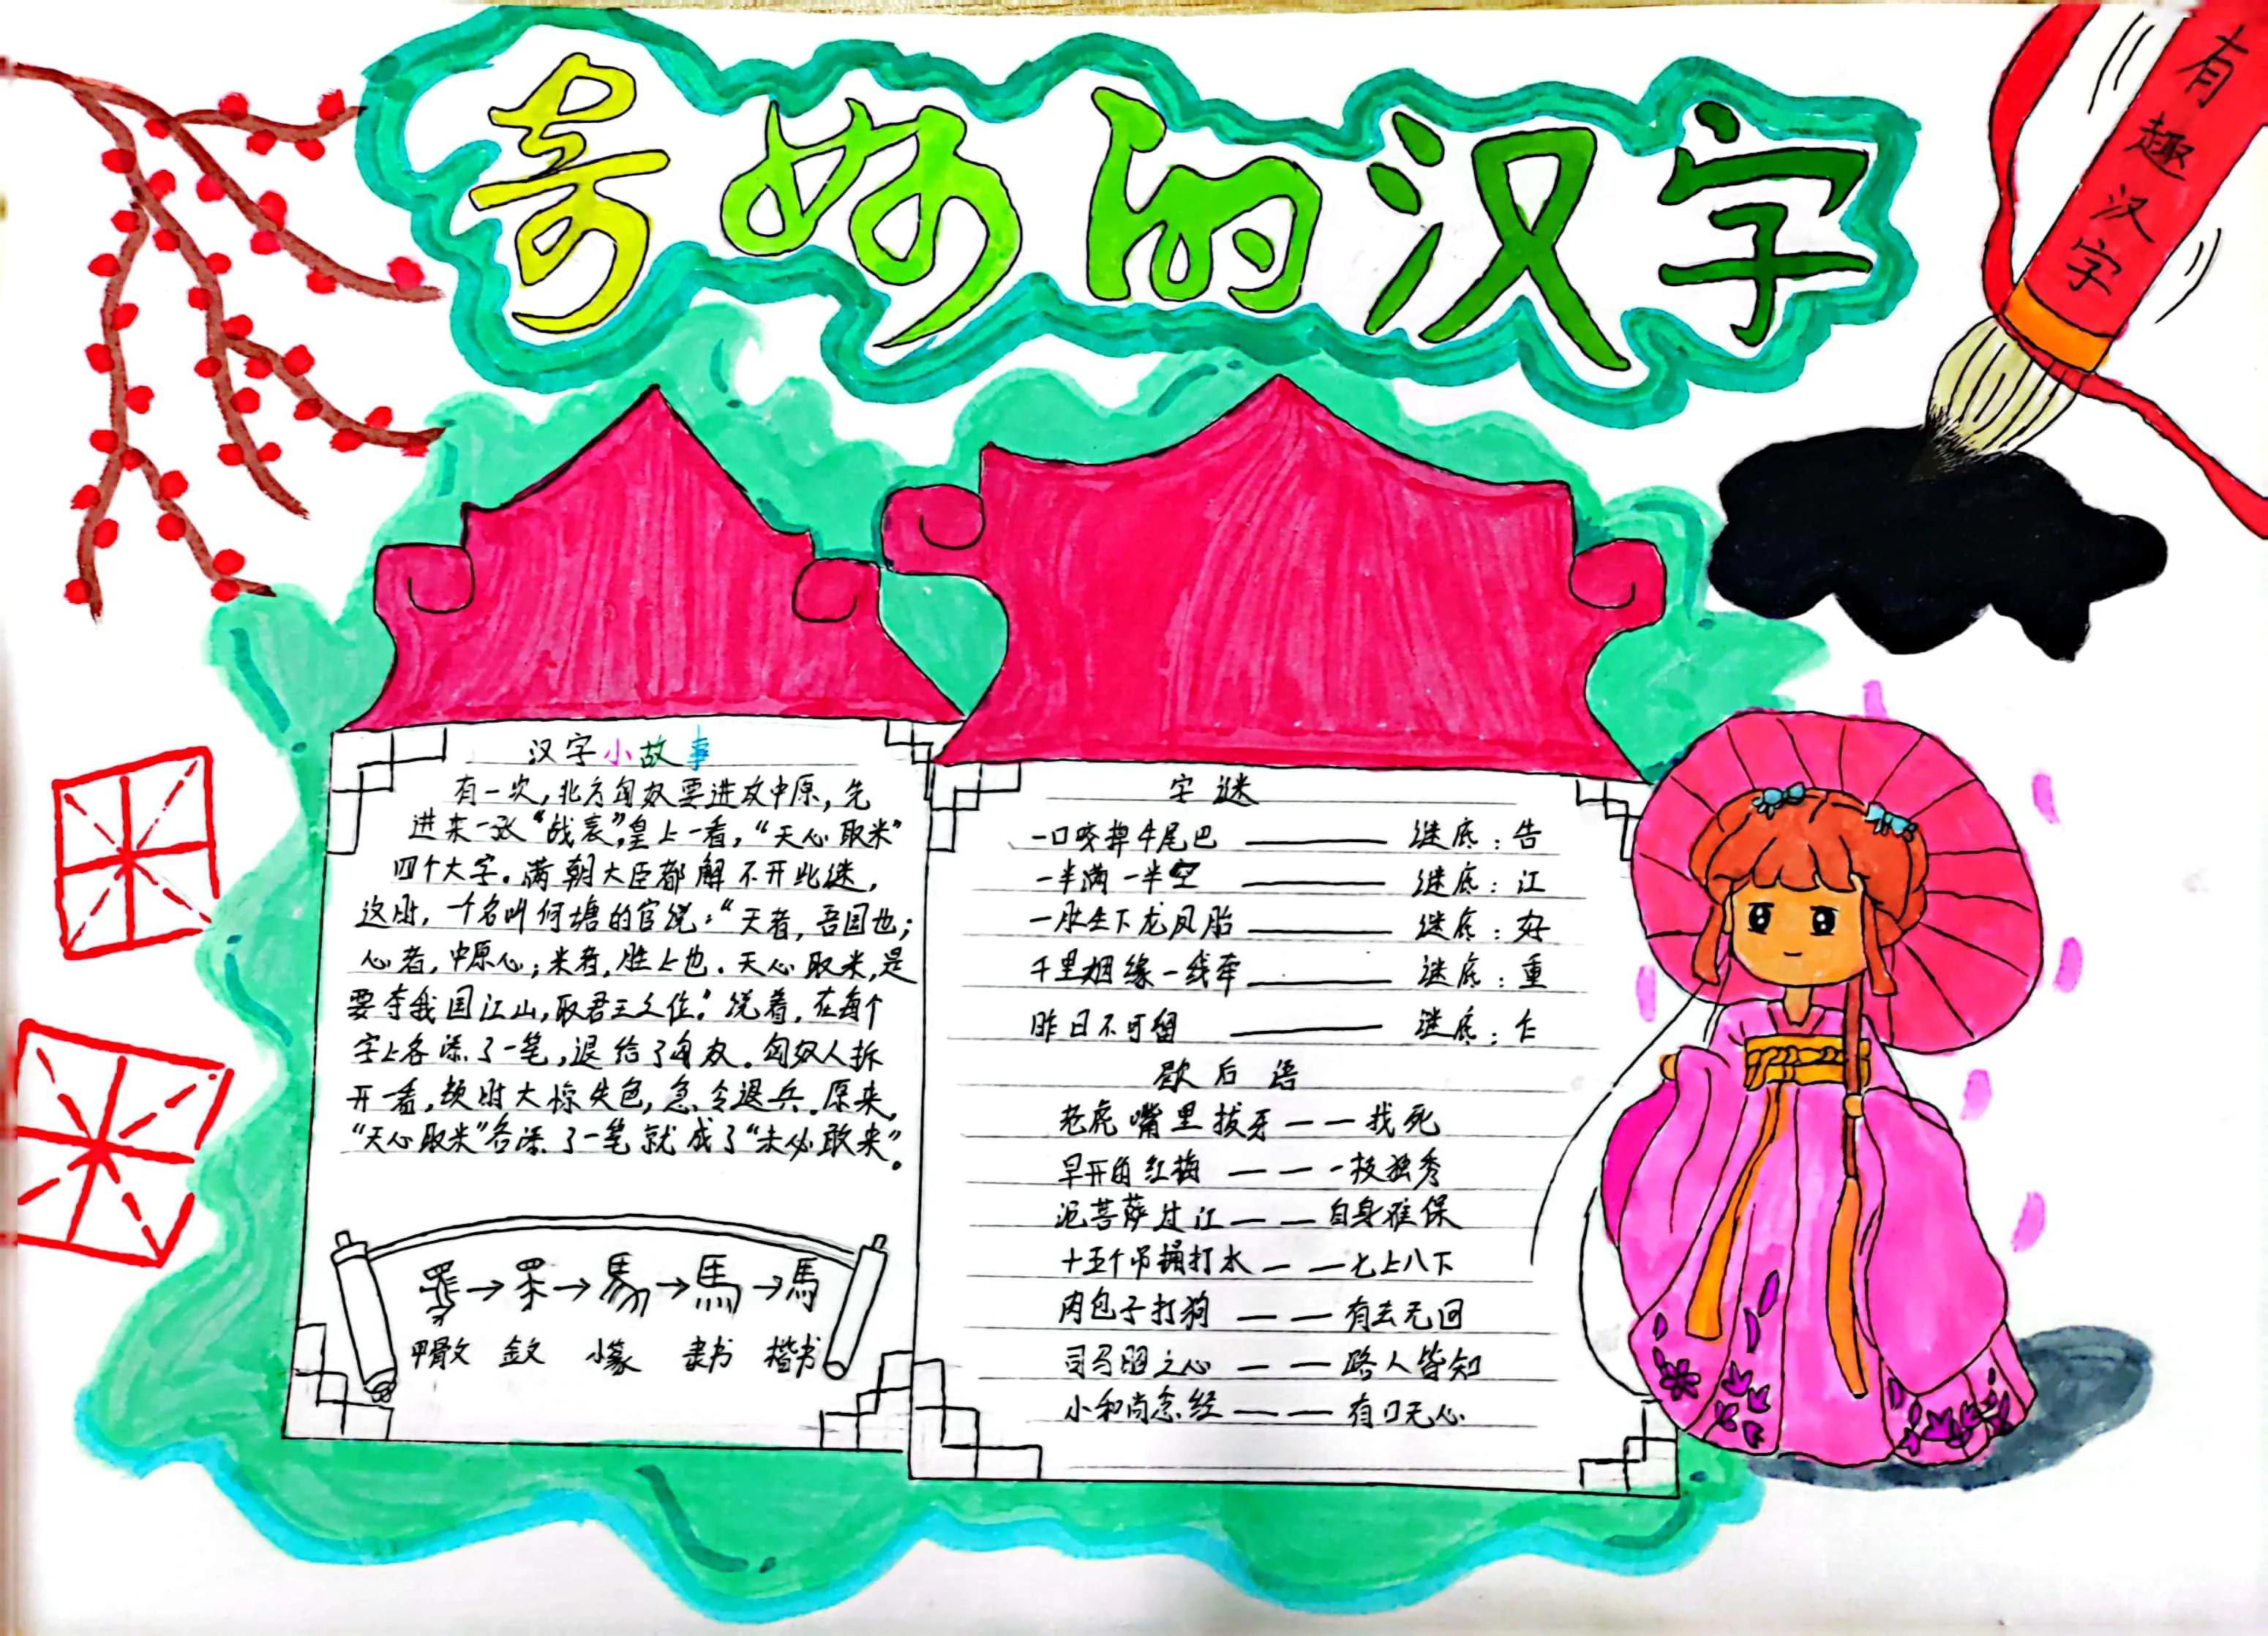 奇妙的汉字
有趣汉字
汉字小故事
有一次,北方匈奴要进攻中原,先
进来一张“战表”,皇上一看,“天心取米”
四个大字。满朝大臣都解不开此谜,
这时,一个名叫何塘的官说:“天者,吾国也;
心者,中原心;米者,胜上也.天心取米,是
要夺我国江山,取君王之位。”说着,在每个
字上各添了一笔,退给了匈奴.匈奴人拆
开一看,顿时大惊失色,急令退兵.原来,
“天心取米”各添了一笔就成了“未必敢来”。
→ → → 馬 → 馬
甲骨文 金文 小篆 隶书 楷书
字谜
一口咬掉牛尾巴 —— 谜底:告
一半满一半空 —— 谜底:江
一胎生下龙凤胎 —— 谜底:好
千里姻缘一线牵 —— 谜底:重
昨日不可留 —— 谜底:乍
歇后语
老虎嘴里拔牙——找死
早开的红梅——一枝独秀
泥菩萨过江——自身难保
十五个吊桶打水——七上八下
肉包子打狗——有去无回
司马昭之心——路人皆知
小和尚念经——有口无心